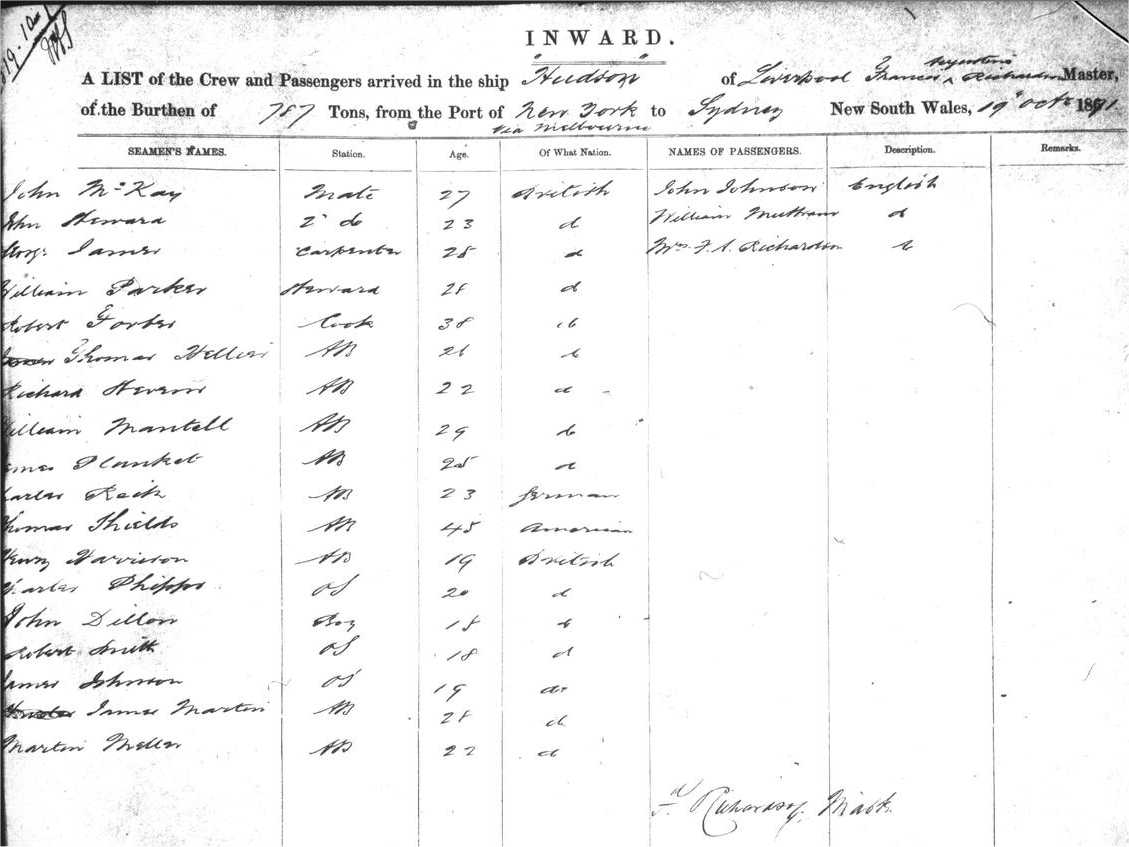 INWARD.
A LIST of the Crew and Passengers arrived in the ship "Hudson" of Liverpool Francis Augustus Richardson Master,
of the Burthen of 787 Tons, from the Port of New York to Sydney New South Wales, 19th Octr 1861
via Melbourne
SEAMEN'S NAMES. Station. Age. Of What Nation. NAMES OF PASSENGERS. Description. Remarks.
John McKay Mate 27 British John Johnson English
John Steward 2d do 23 d William d
George James Carpenter 28 d Mrs F. A. Richardson d
William Parker Steward 28 d
Robert Forbes Cook 38 d
Thomas Hellier AB 26 d
Richard Stevens AB 22 d
William Mantell AB 29 d
James Plunket AB 25 d
Charles AB 23 German
Thomas Shields AB 45 American
Henry Harrison AB 19 British
Charles Phipps OS 20 d
John Dillon Boy 18 d
Robert Smith OS 18 d
James Johnson OS 19 do
James Martin AB 28 d
Martin AB 22 d
Richardson, Mast.